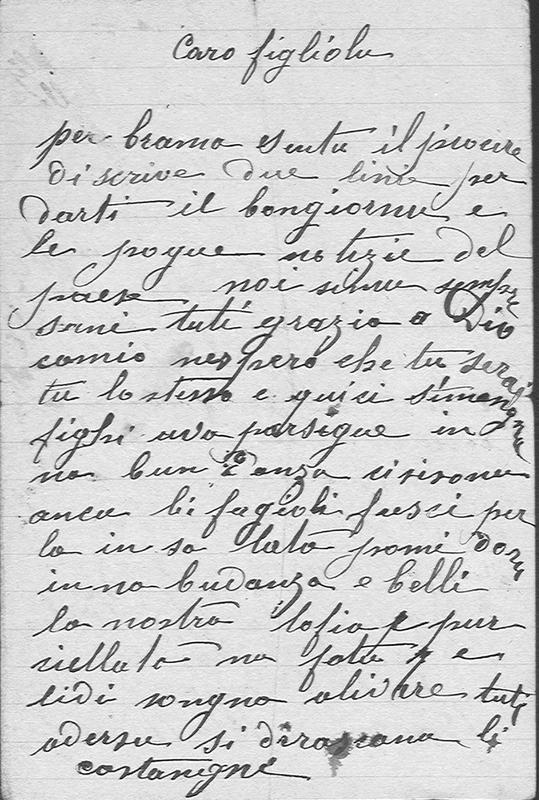 Caro figliolu
per brama esentu il piaceire
di scrive due linie per
darti il bongiornu e
le pogue notizie del
paese noi simu sempre
sani tuti grazia a Dio
comio nesperó che tu serai
tu lo stesso e quici simangnu
fighi uva persigue in
na bun danza cisisonu
ancu li fagioli fresci per
la in sa lata pomi doru
in na budanza e belli
la nostra e pur
na fatu 7 e
lidi songno olivare tuti
adersu si dirascana li
castanigne